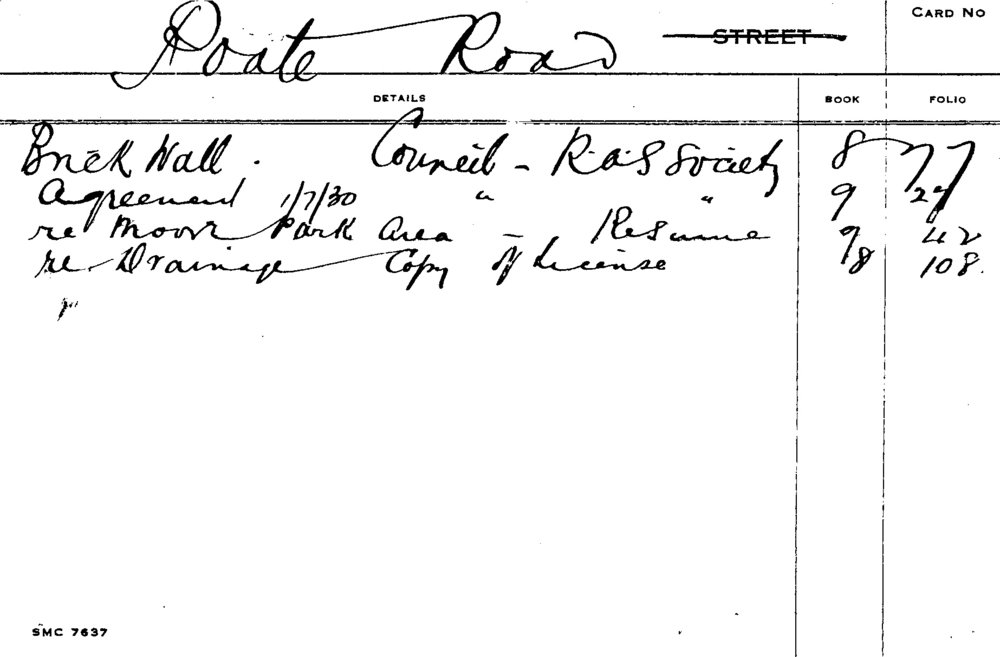 Poate Road STREET CARD NO
DETAILS BOOK FOLIO
Brick Wall. Council - R.A.S Society 8 77
Agreement 1/7/30 " " 9 29
re Moore Park Area - Resume 9 42
re Drainage Copy of License 9/8 108.
SMC 7637